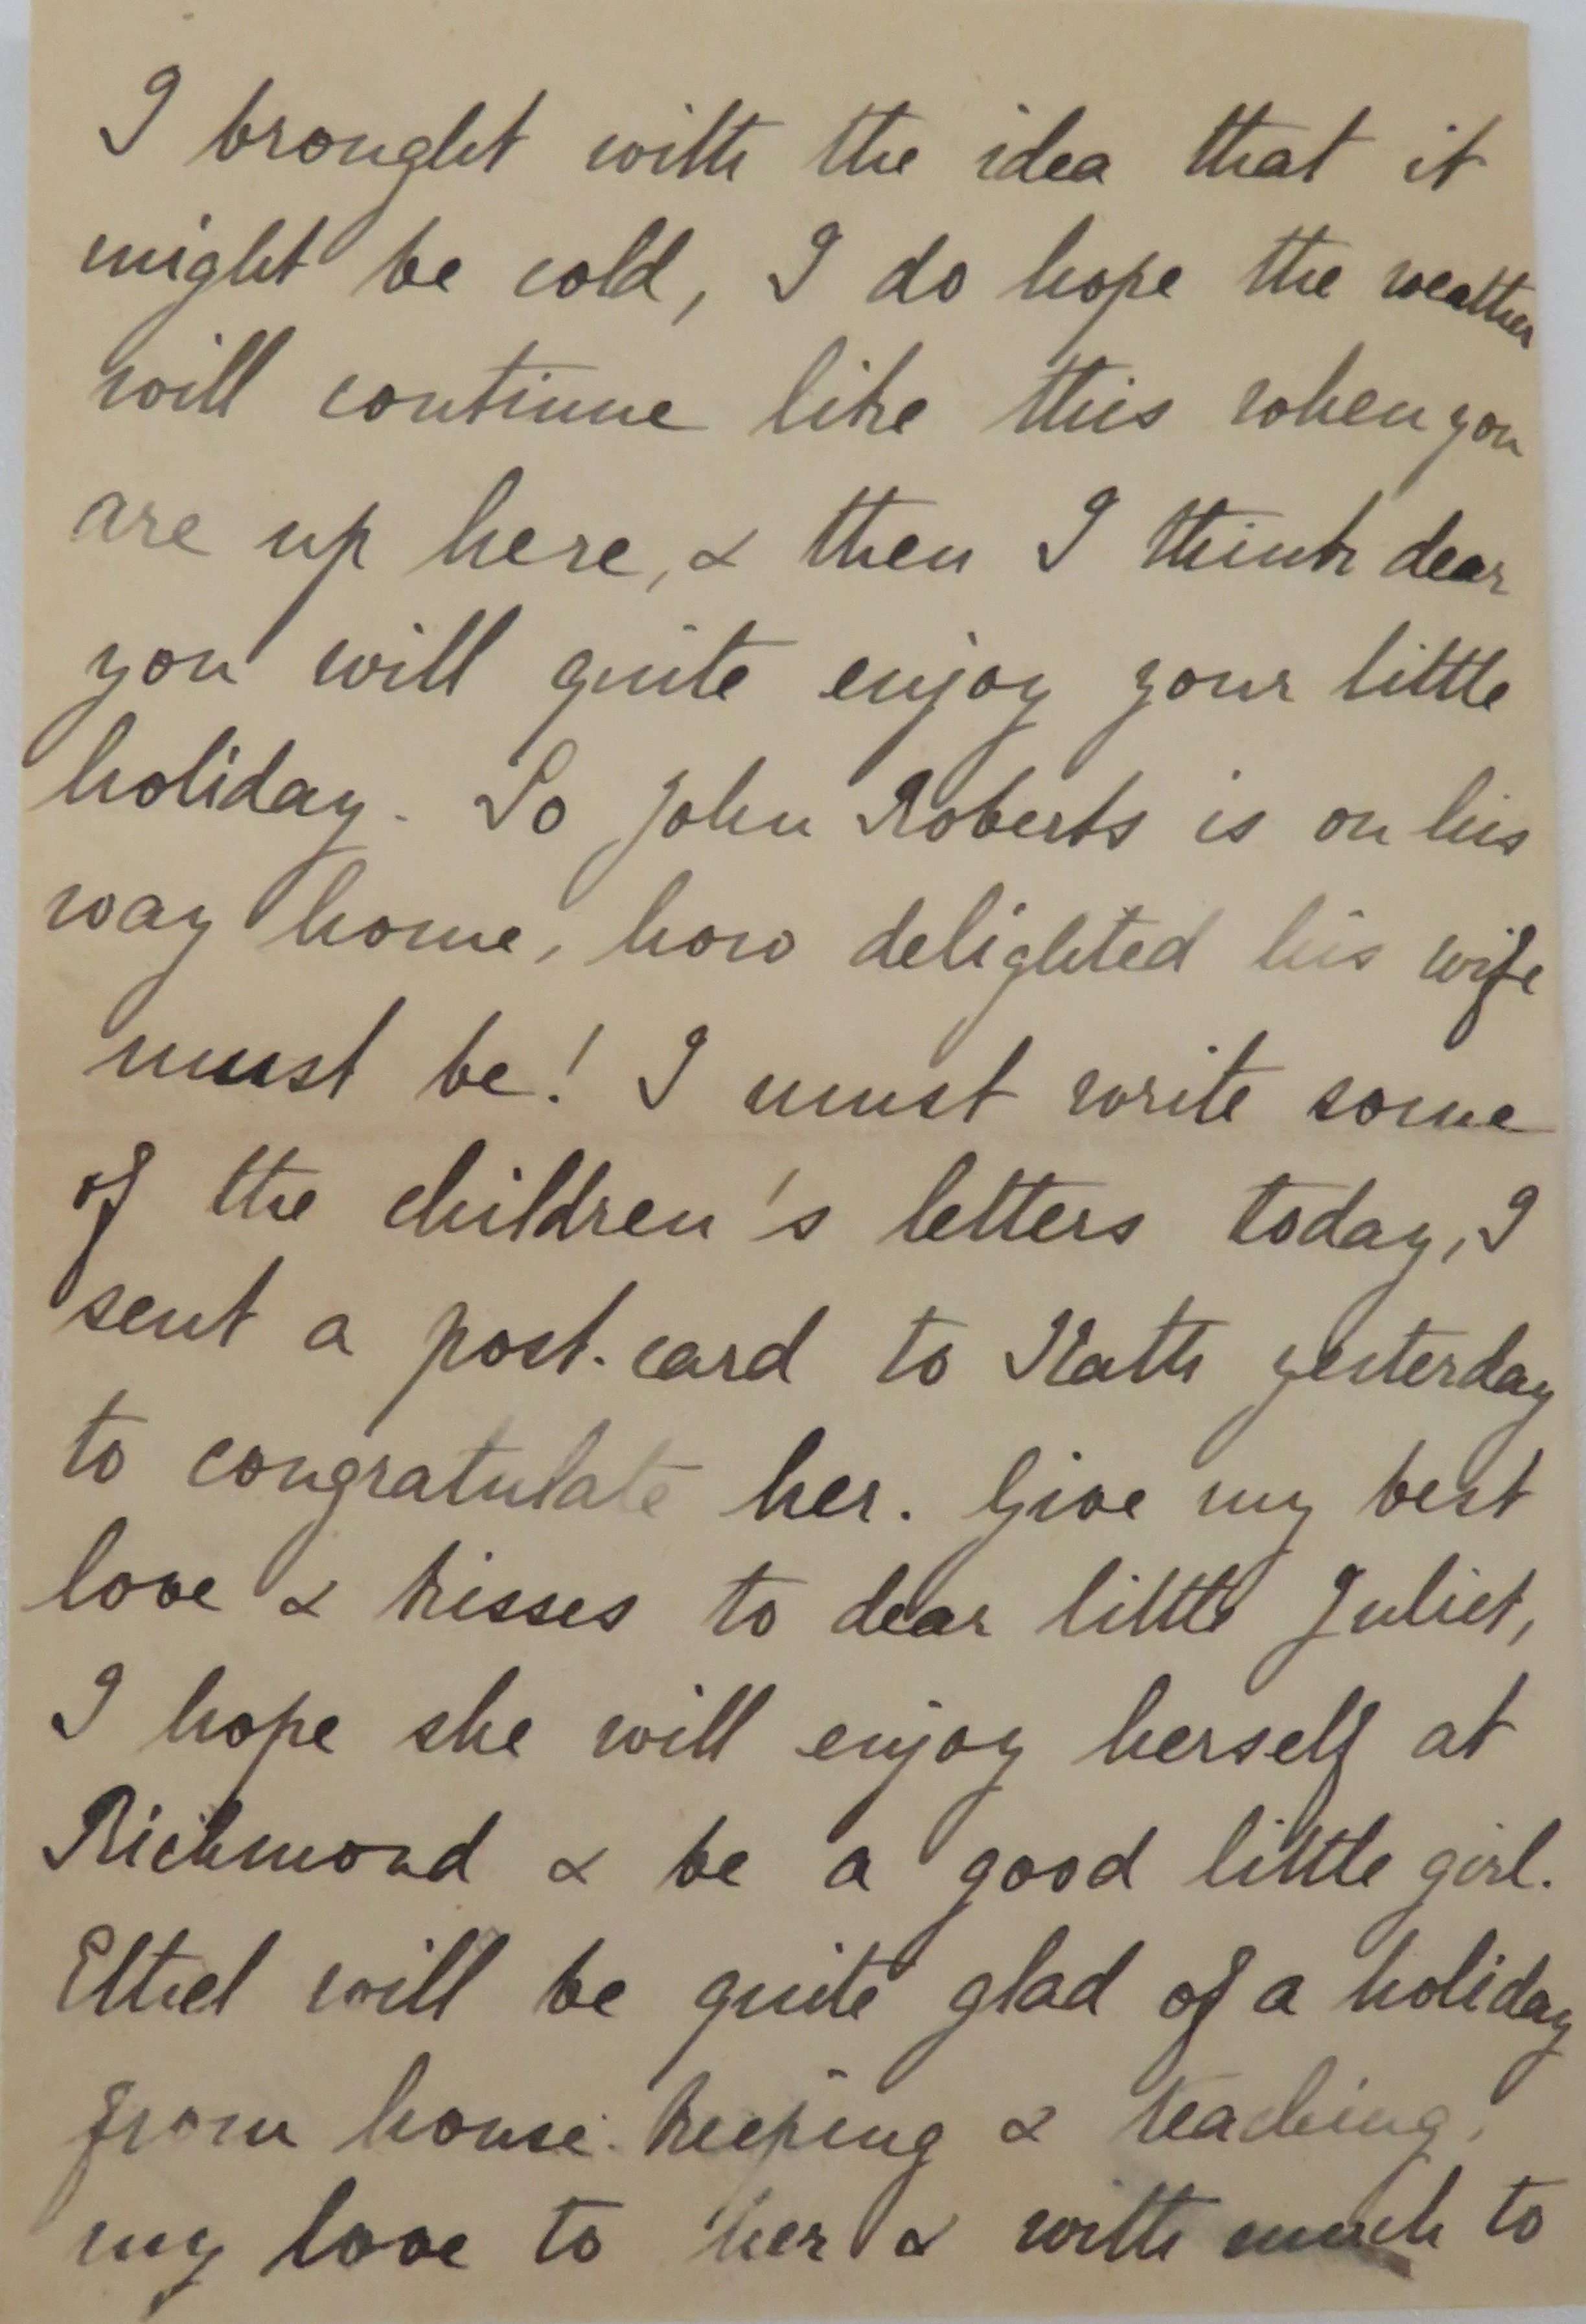 I brought with the idea that it
might be cold, I do hope the weather
will continue like this when you
are up here, & then I think dear
you will quite enjoy your little
holiday. So John Roberts is on his
way home, how delighted his wife
must be! I must write some
of the children's letters today, I
sent a post-card to Kath yesterday
to congratulate her. Give my best
love & kisses to dear little Juliet,
I hope she will enjoy herself at
Richmond & be a good little girl.
Ethel will be quite glad of a holiday
from house-keeping & teaching,
my love to her & with much to